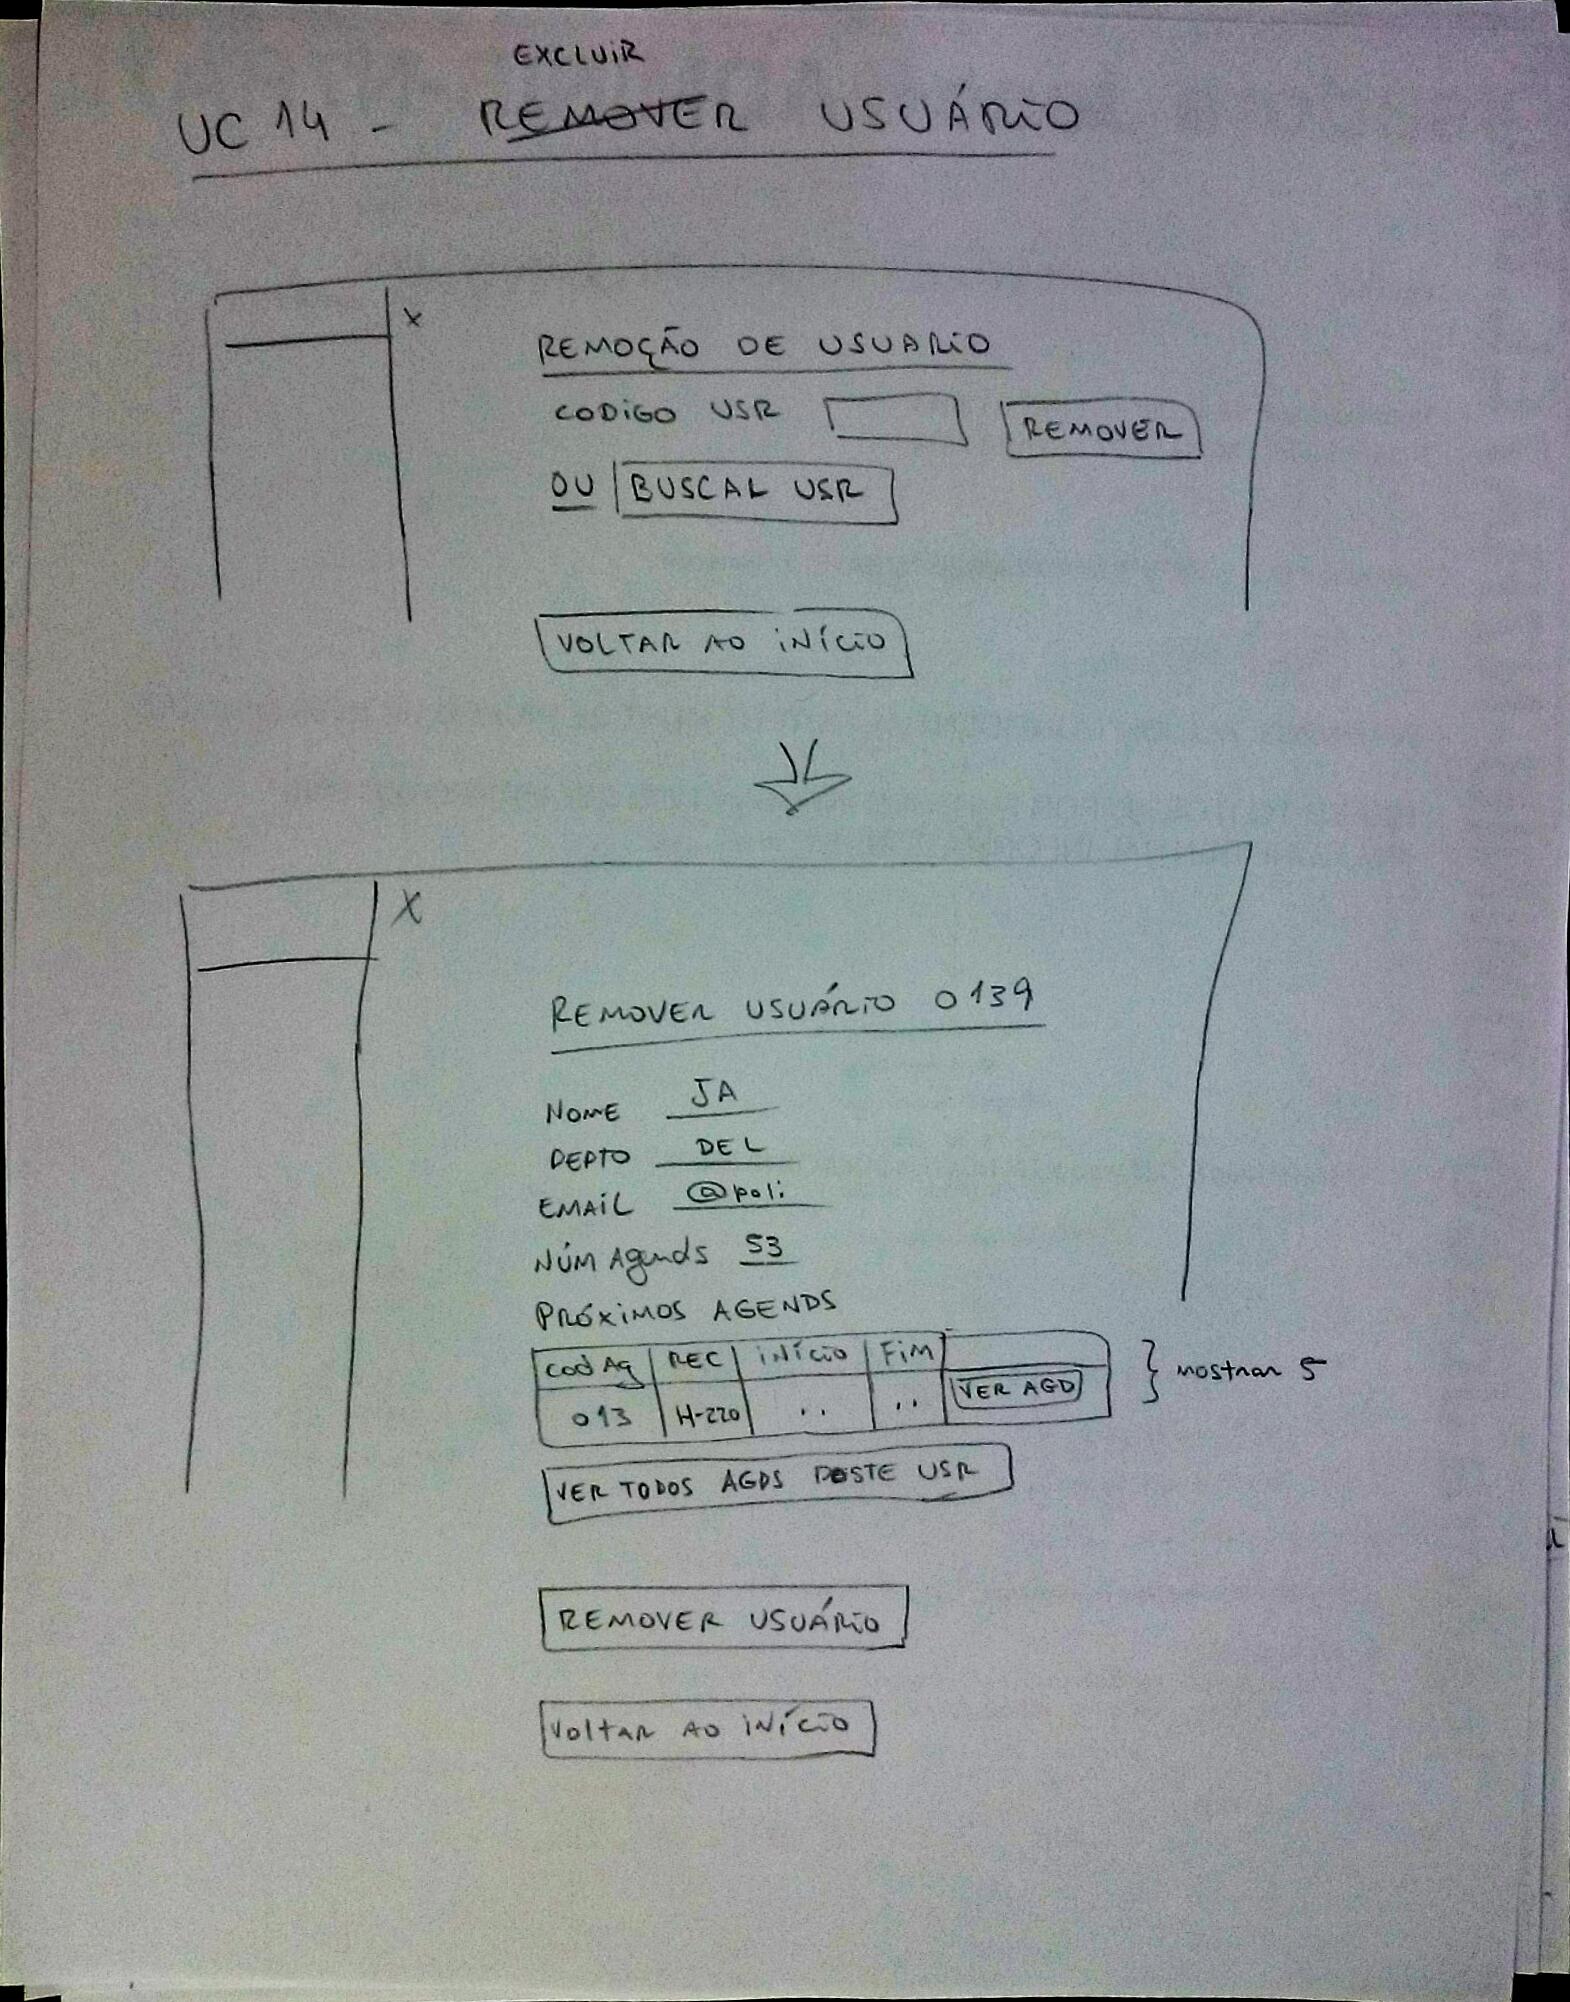 EXCLUIR
UC 14 - REMOVER USUÁRIO
X
REMOÇÃO DE USUARIO
CODIGO USR
REMOVER
OU BUSCAR USR
VOLTAR AO INÍCIO
X
REMOVER USUÁRIO 0139
NOME JA
DEPTO DEL
EMAIL @poli
NÚM Agends 53
PRÓXIMOS AGENDS
Cod Ag REC INÍCIO FIM
013 H-220 .. .. VER AGD
} mostrar 5
VER TODOS AGDS DESTE USR
REMOVER USUÁRIO
Voltar AO INÍCIO